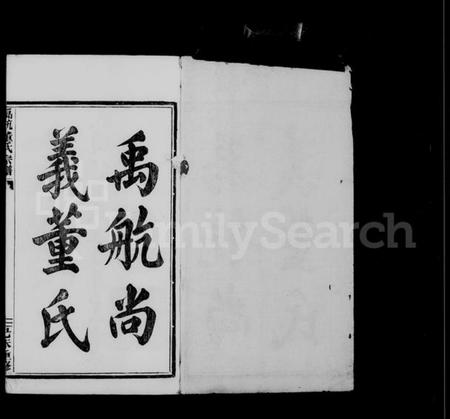 禹航尚
義董氏
FamilySearch